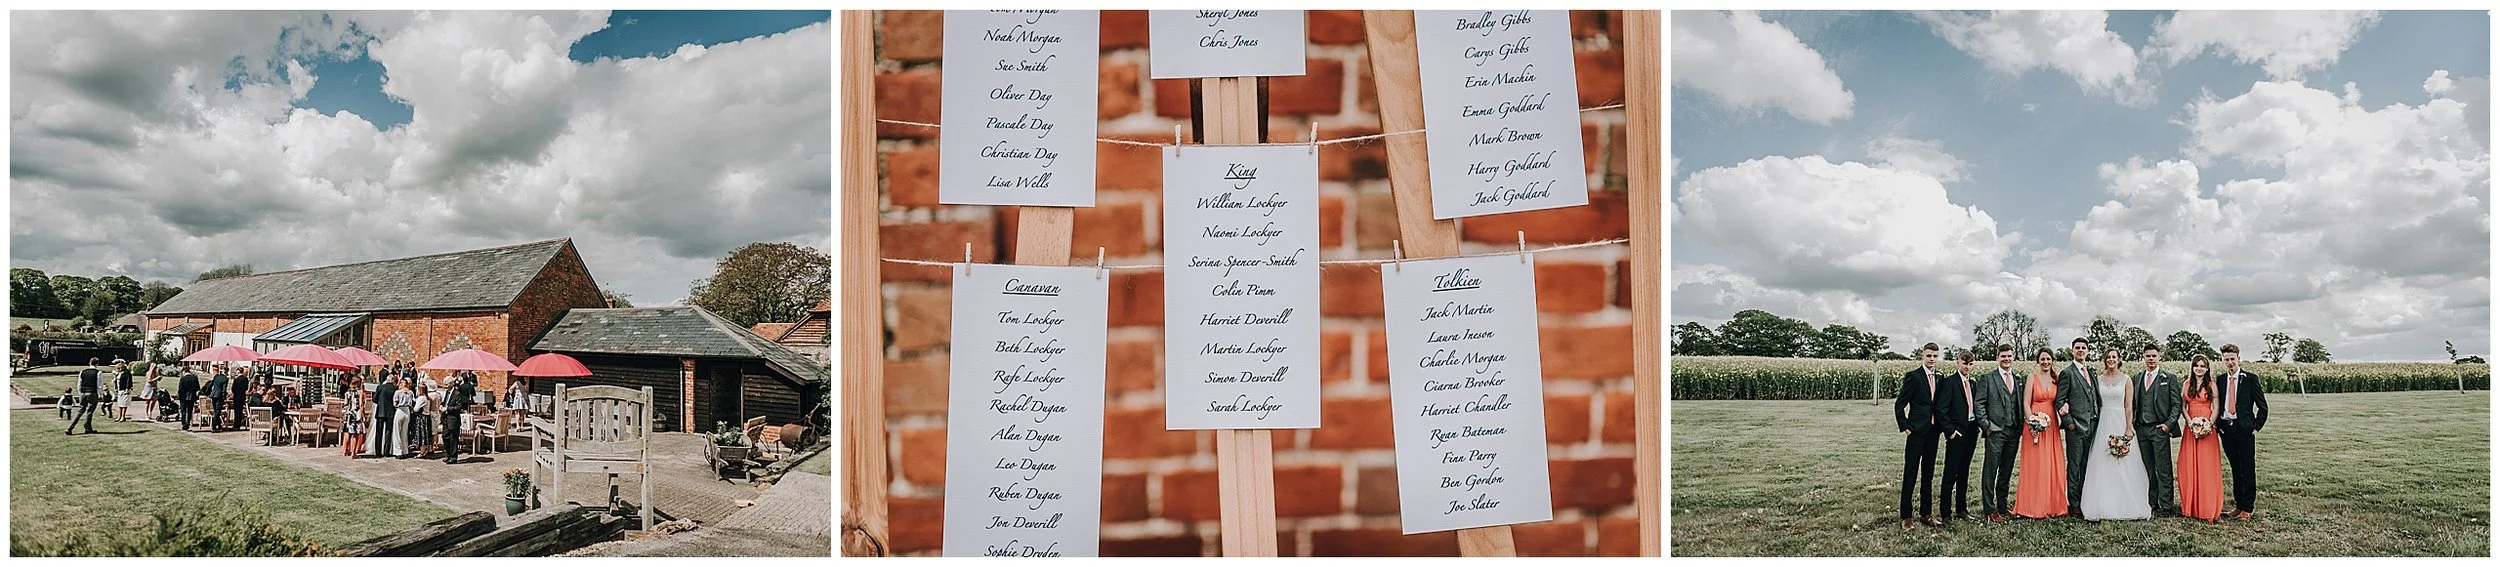 Tom Morgan
Noah Morgan
Sue Smith
Oliver Day
Pascale Day
Christian Day
Lisa Wells
Sheryl Jones
Chris Jones
Bradley Gibbs
Carys Gibbs
Erin Machin
Emma Goddard
Mark Brown
Harry Goddard
Jack Goddard
Canavan
Tom Lockyer
Beth Lockyer
Rafe Lockyer
Rachel Dugan
Alan Dugan
Leo Dugan
Ruben Dugan
Jon Deverill
Sophie Dryden
King
William Lockyer
Naomi Lockyer
Serina Spencer-Smith
Colin Pimm
Harriet Deverill
Martin Lockyer
Simon Deverill
Sarah Lockyer
Tolkien
Jack Martin
Laura Ineson
Charlie Morgan
Ciarna Brooker
Harriet Chandler
Ryan Bateman
Finn Parry
Ben Gordon
Joe Slater